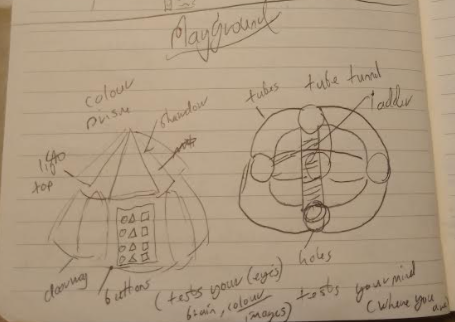 Playground
colour
prism
shadow
top
buttons
(tests your (eyes)
brain, colour
images)
tubes
tube tunnel
ladder
holes
tests your mind
(where you are)